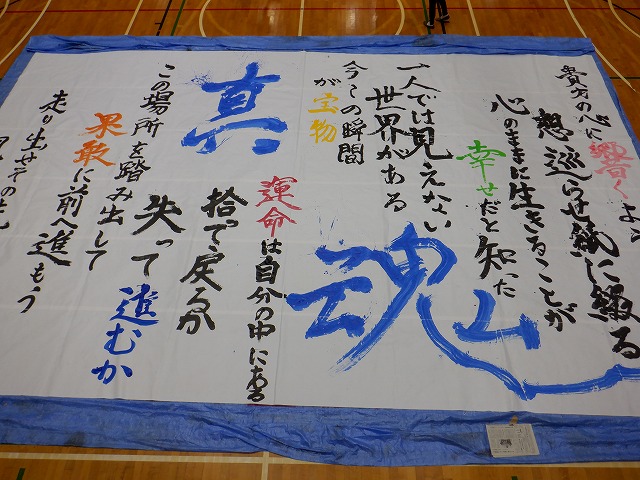 貴方の心に響くよう
想巡らせ紙に綴る
心のままに生きることが
幸せだと知った
一人では見えない
世界がある
今この瞬間
が宝物
真
魂
運命は自分の中にある
拾って戻るか
失って進むか
この場所を踏み出して
果敢に前へ進もう
走り出せその先